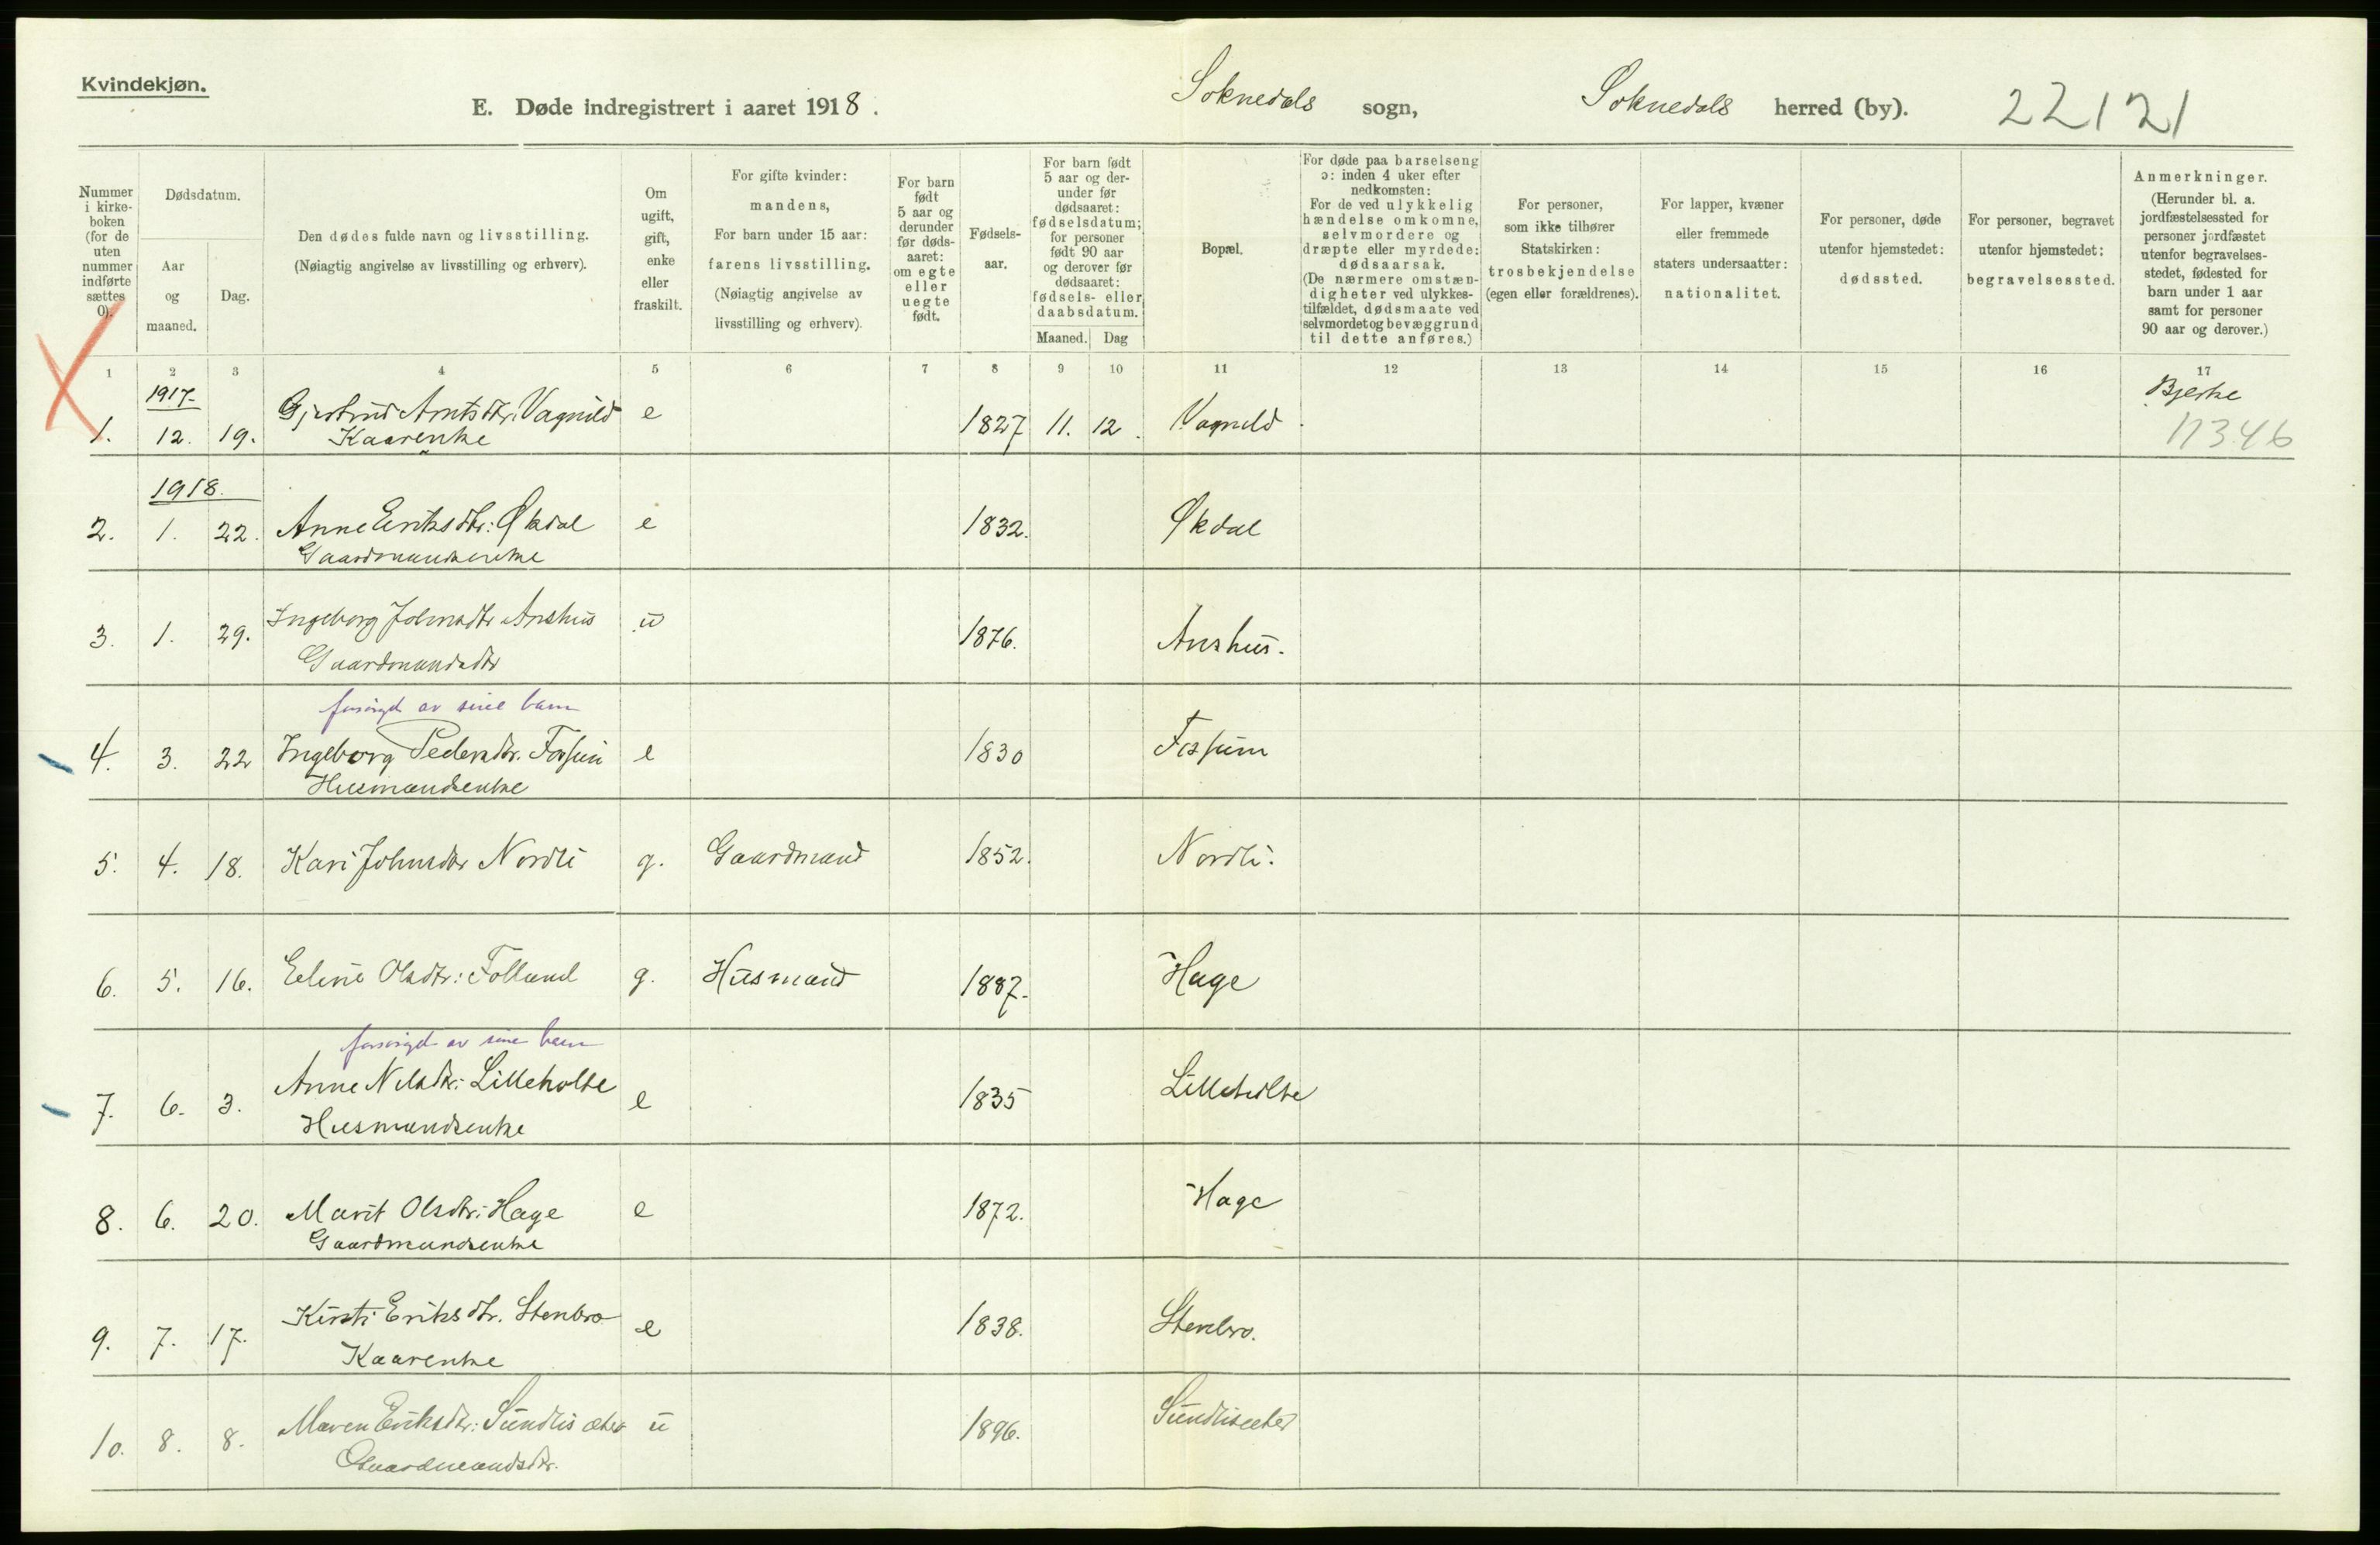 Kvindekjøn.
E. Døde indregistrert i aaret 1918.
Soknedals sogn, Soknedals herred (by). 22121
Nummer i kirke-boken (for de uten nummer indførte sættes 0).
Dødsdatum.
Aar og maaned.
Dag.
Den dødes fulde navn og livsstilling.
(Nøiagtig angivelse av livsstilling og erhverv).
Om ugift, gift, enke eller fraskilt.
For gifte kvinder: mandens,
For barn under 15 aar: farens livsstilling.
(Nøiagtig angivelse av livsstilling og erhverv).
For barn født 5 aar og derunder før døds-aaret: om egte eller uegte født.
Fødsels-aar.
For barn født 5 aar og der-under før dødsaaret: fødselsdatum; for personer født 90 aar og derover før dødsaaret: fødsels- eller daabsdatum.
Maaned. Dag
Bopæl.
For døde paa barselseng ɔ: inden 4 uker efter nedkomsten:
For de ved ulykkelig hændelse omkomne, selvmordere og dræpte eller myrdede: dødsaarsak.
(De nærmere omstæn-digheter ved ulykkes-tilfældet, dødsmaate ved selvmordet og bevæggrund til dette anføres.)
For personer, som ikke tilhører Statskirken: trosbekjendelse (egen eller forældrenes).
For lapper, kvæner eller fremmede staters undersaatter: nationalitet.
For personer, døde utenfor hjemstedet: dødssted.
For personer, begravet utenfor hjemstedet: begravelsessted.
Anmerkninger.
(Herunder bl. a. jordfæstelsessted for personer jordfæstet utenfor begravelses-stedet, fødested for barn under 1 aar samt for personer 90 aar og derover.)
1 2 3 4 5 6 7 8 9 10 11 12 13 14 15 16 17
1917-
1. 12. 19. Gjertrud Arntsdtr. Vagnild e 1827 11. 12. Vagnild Bjerke
Kaarenke 17346
1918.
2. 1. 22. Anne Eriksdtr: Økdal e 1832. Økdal
Gaardmandsenke
3. 1. 29. Ingeborg Johnsdtr Anshus u 1876. Anshus.
Gaardmandsdtr
forsørget av sine barn
4. 3. 22 Ingeborg Pedersdtr. Fossum e 1830 Fossum
Husmandsenke
5. 4. 18. Kari Johnsdtr Nordli g. Gaardmand 1852. Nordli.
6. 5. 16. Eline Olsdtr: Folland g. Husmand 1887. Hage
forsørget av sine barn
7. 6. 3. Anne Nilsdtr: Lilleholte e 1835 Lilleholte
Husmandsenke
8. 6. 20. Marit Olsdtr: Hage e 1872. Hage
Gaardmandsenke
9. 7. 17. Kirsti Eriksdtr. Stenbro e 1838. Stenbro.
Kaarenke
10. 8. 8. Maren Eriksdtr: Sundlisæter u 1896. Sundlisæter
Gaardmandsdtr.